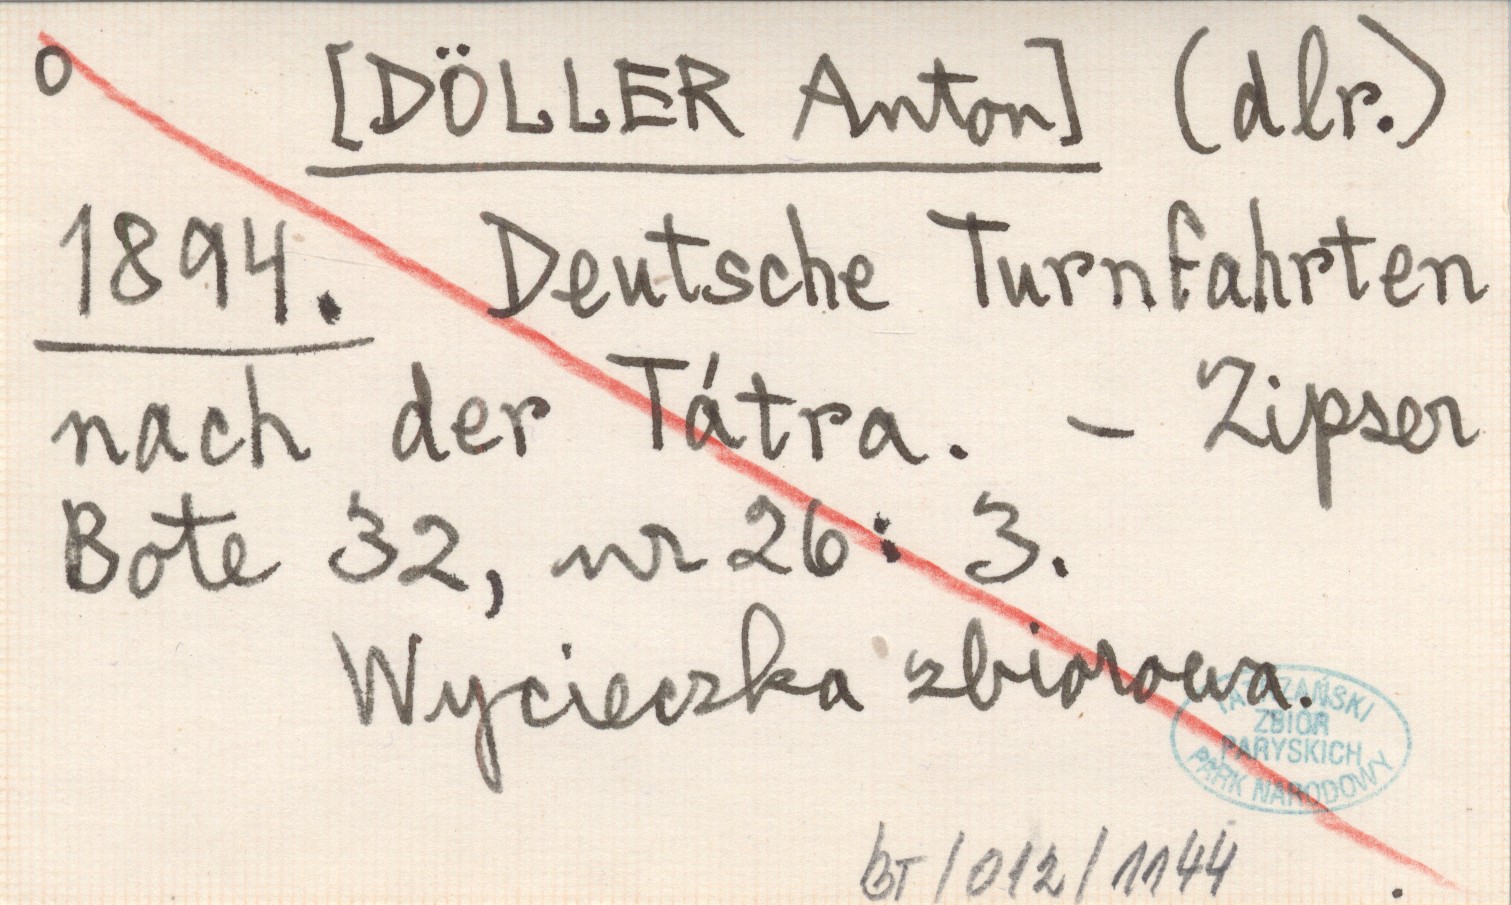 o [DÖLLER Anton] (dlr.)
1894. Deutsche Turnfahrten
nach der Tátra. - Zipser
Bote 32, nr 26: 3.
Wycieczka zbiorowa.
TATRZAŃSKI
ZBIÓR
PARYSKICH
PARK NARODOWY
BT/012/1144